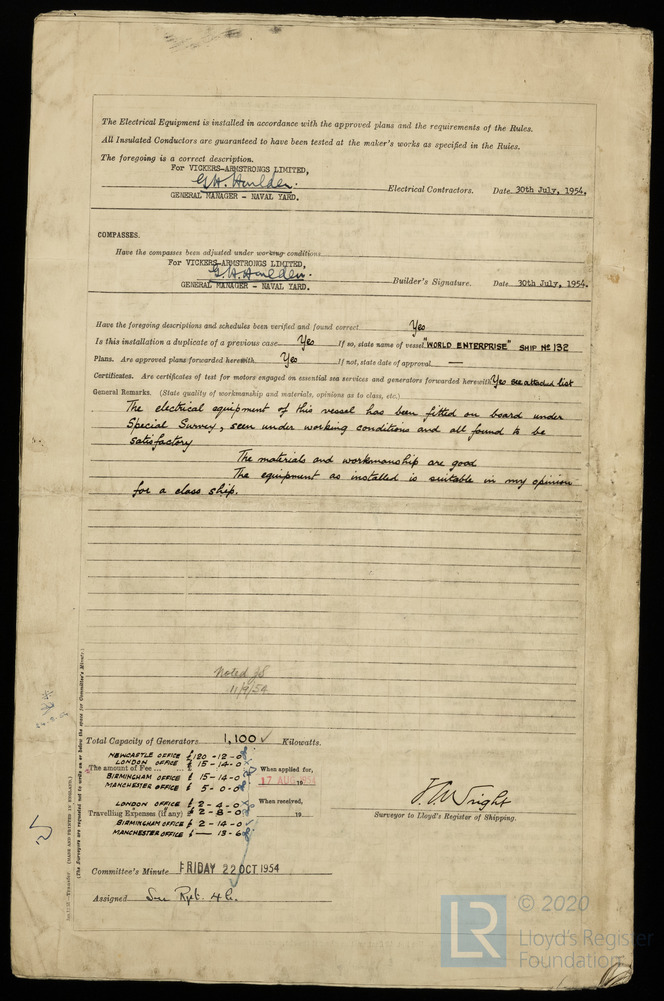 The Electrical Equipment is installed in accordance with the approved plans and the requirements of the Rules.
All Insulated Conductors are guaranteed to have been tested at the maker's works as specified in the Rules.
The foregoing is a correct description.
For VICKERS-ARMSTRONGS LIMITED,
GENERAL MANAGER - NAVAL YARD. Electrical Contractors. Date 30th July, 1954.
COMPASSES.
Have the compasses been adjusted under working conditions
For VICKERS-ARMSTRONGS LIMITED,
GENERAL MANAGER - NAVAL YARD. Builder's Signature. Date 30th July, 1954.
Have the foregoing descriptions and schedules been verified and found correct Yes
Is this installation a duplicate of a previous case Yes If so, state name of vessel "WORLD ENTERPRISE" SHIP No 132
Plans. Are approved plans forwarded herewith Yes If not, state date of approval —
Certificates. Are certificates of test for motors engaged on essential sea services and generators forwarded herewith Yes see attached list
General Remarks. (State quality of workmanship and materials, opinions as to class, etc.)
The electrical equipment of this vessel has been fitted on board under
Special Survey, seen under working conditions and all found to be
satisfactory
The materials and workmanship are good
The equipment as installed is suitable in my opinion
for a class ship.
Noted
11/9/54
Total Capacity of Generators 1,100 ✓ Kilowatts.
NEWCASTLE OFFICE £120-12-0
LONDON OFFICE £ 15-14-0
The amount of Fee ... When applied for,
BIRMINGHAM OFFICE £ 15-14-0 17 AUG 1954
MANCHESTER OFFICE £ 5-0-0
LONDON OFFICE £ 2-4-0 When received,
Travelling Expenses (if any) £ 2-8-0 19
BIRMINGHAM OFFICE £ 2-14-0
MANCHESTER OFFICE £ — 13-6
J.C. Wright
Surveyor to Lloyd's Register of Shipping.
Committee's Minute FRIDAY 22 OCT 1954
Assigned See Rpt. 4c.
(MADE AND PRINTED IN ENGLAND.)
(The Surveyors are requested not to write on or below the space for Committee's Minute.)
LR
© 2020
Lloyd's Register
Foundation